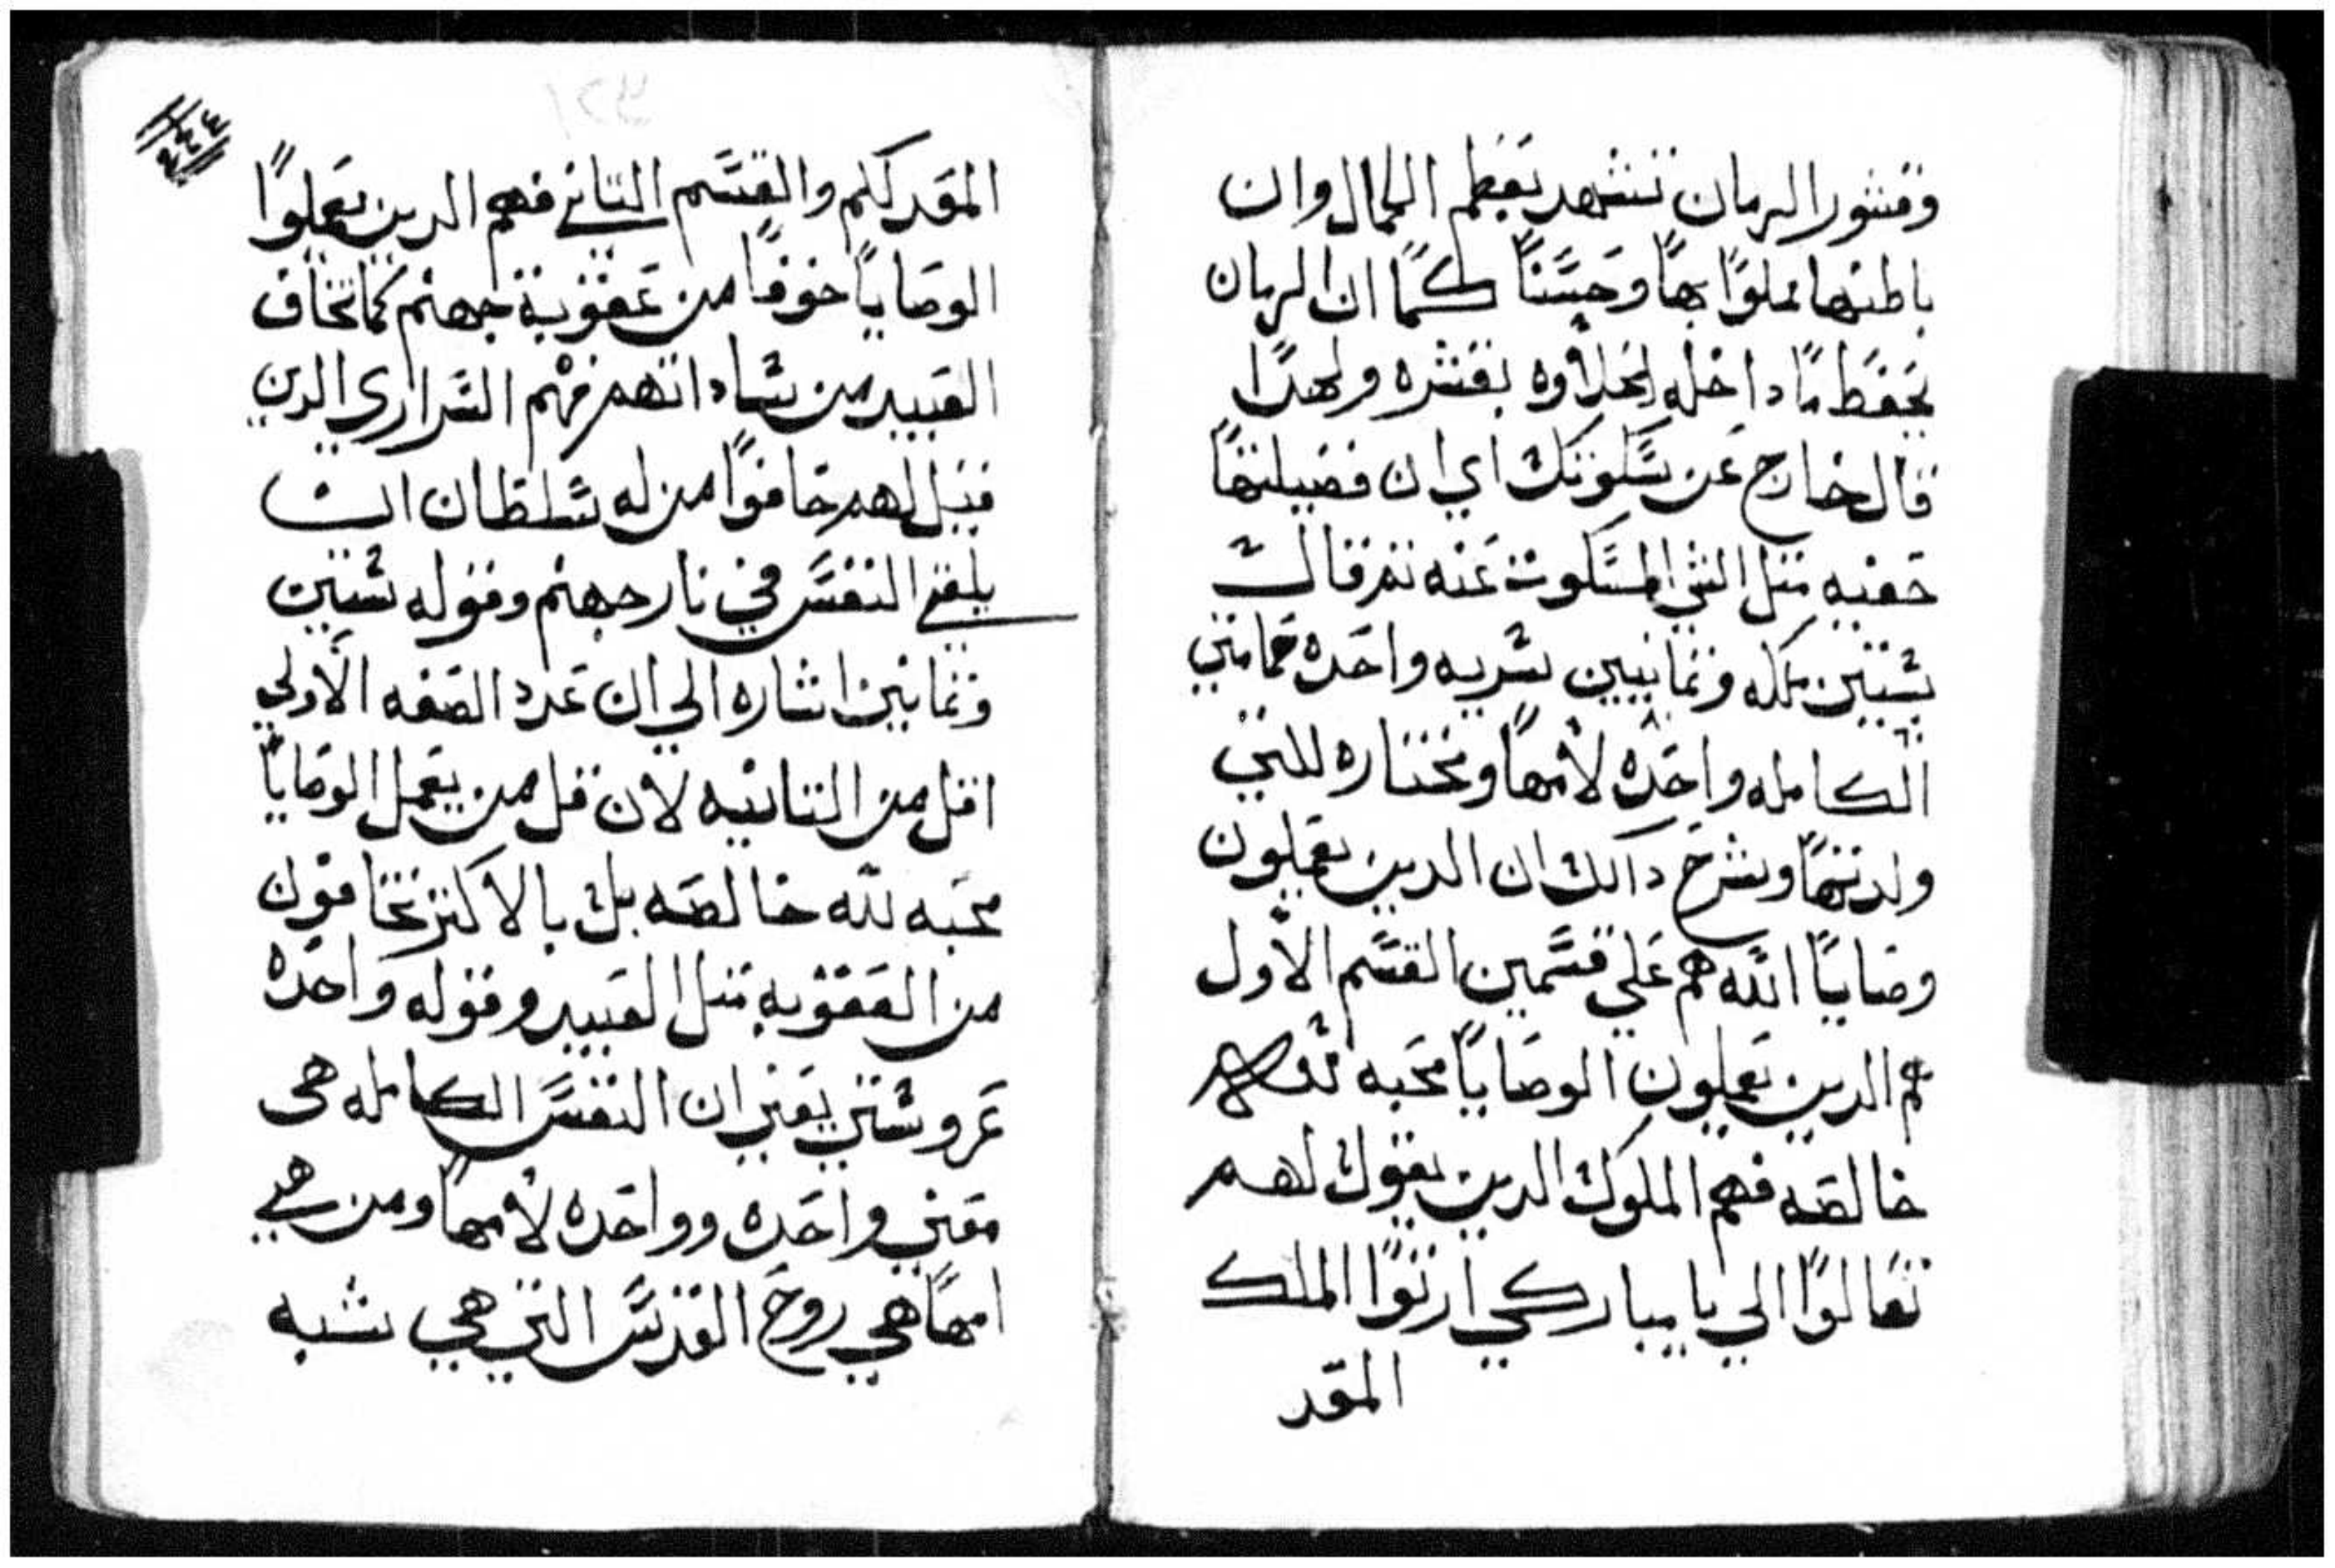 وقشور الرمان تشهد بعظم الجمال وان
باطنها مملوًا بهًا وحسنًا كمًا ان الرمان
يحفظ ما داخله لحلاوه بقشره ولهدا
قال خارج عن سكوتك اي ان فضيلتها
خفيه مثل الشي المسكوت عنه ثم قالت
ستين ملكه وثمانيين سريه واحده حمامتي
الكامله واحده لأمها ومختاره للتي
ولدتها وشرح دالك ان الدين يعملون
وصايا الله هم علي قسمين القسم الأول
هم الدين يعملون الوصايا محبه لله
خالصه فهم الملوك الدين يقول لهم
تعالوا الي يا مباركي ارثوا الملك
المعد
٢٤٤
المعد لكم والقسم التاني فهم الدين يعملوا
الوصايا خوفا من عقوبة جهنم كما تخاف
العبيد من ساداتهم فهم السراري الدين
قيل لهم خافوا من له سلطان ان
يلقي النفس في نار جهنم وقوله ستين
وثمانين اشاره الي ان عدد الصفه الأولي
اقل من التانيه لان قل من يعمل الوصايا
محبه لله خالصه بل بالاكتر يخافون
من العقوبه متل العبيد وقوله واحده
عروستي يعني ان النفس الكامله هى
معني واحده وواحده لأمها ومن هي
امها هي روح القدس التي هي تشبه